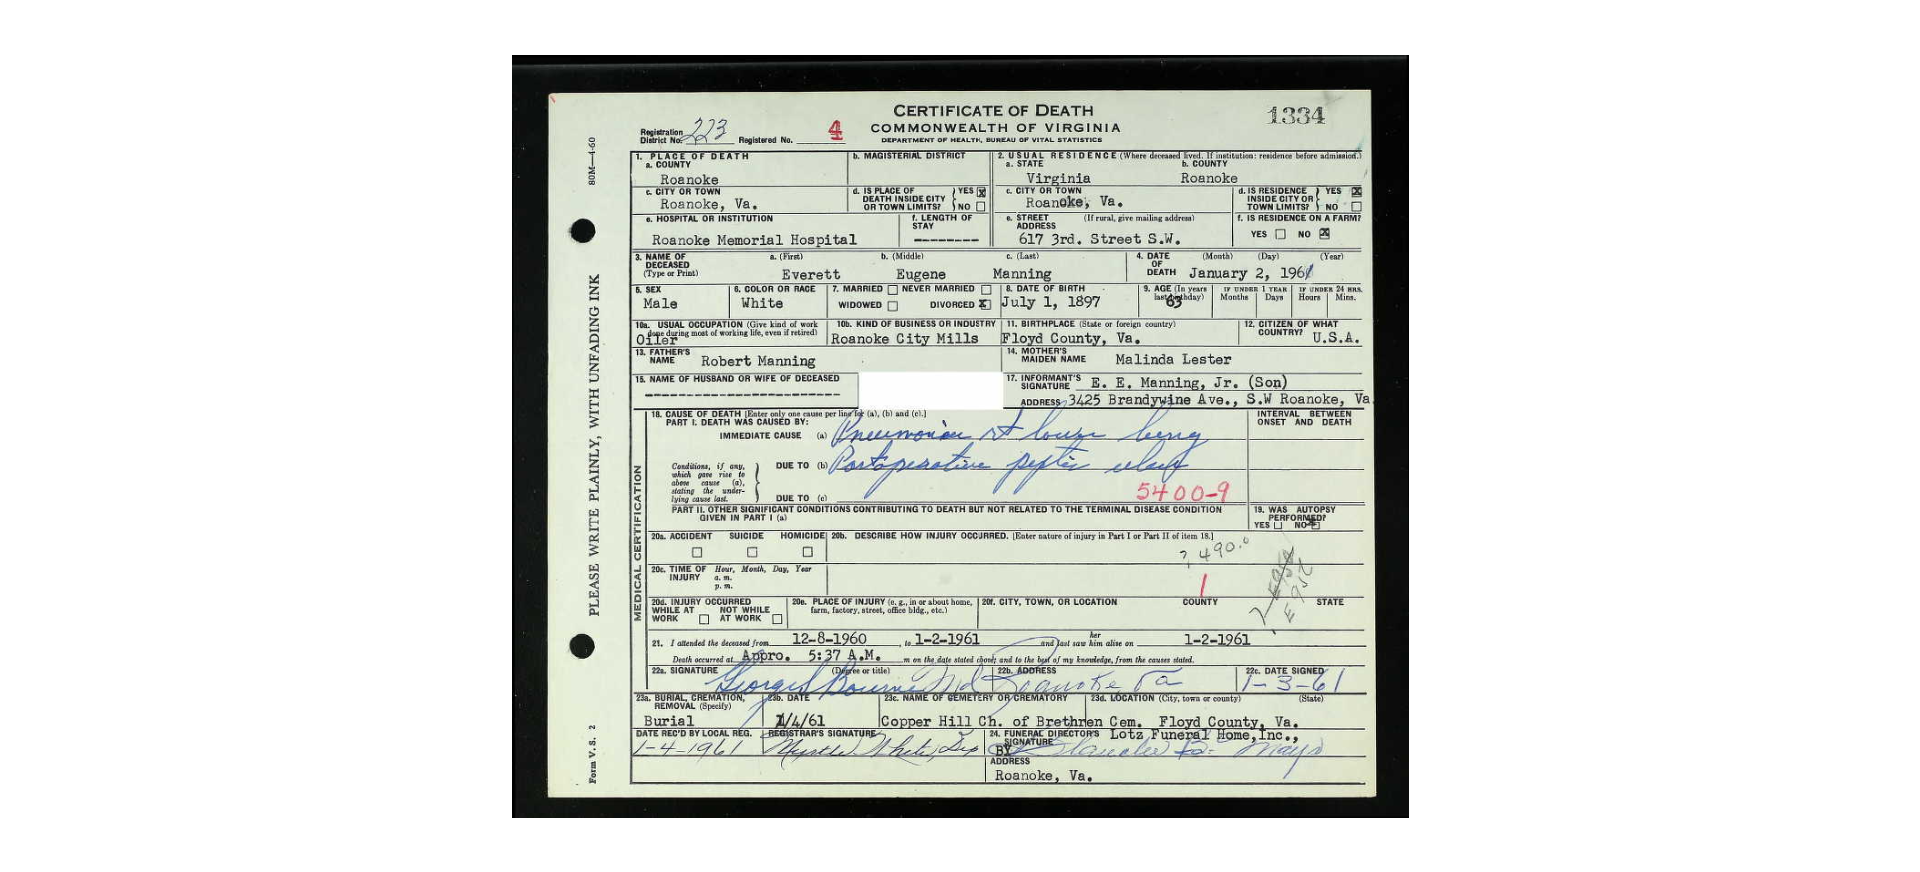 CERTIFICATE OF DEATH
COMMONWEALTH OF VIRGINIA
DEPARTMENT OF HEALTH, BUREAU OF VITAL STATISTICS
1334
Registration District No. 223 Registered No. 4
80M—4-60
PLEASE WRITE PLAINLY, WITH UNFADING INK
Form V. S. 2
1. PLACE OF DEATH
a. COUNTY
Roanoke
b. MAGISTERIAL DISTRICT
2. USUAL RESIDENCE (Where deceased lived. If institution: residence before admission.)
a. STATE b. COUNTY
Virginia Roanoke
c. CITY OR TOWN
Roanoke, Va.
d. IS PLACE OF DEATH INSIDE CITY OR TOWN LIMITS? YES X NO
c. CITY OR TOWN
Roanoke, Va.
d. IS RESIDENCE INSIDE CITY OR TOWN LIMITS? YES X NO
e. HOSPITAL OR INSTITUTION
Roanoke Memorial Hospital
f. LENGTH OF STAY
--------
e. STREET ADDRESS (If rural, give mailing address)
617 3rd. Street S.W.
f. IS RESIDENCE ON A FARM?
YES NO X
3. NAME OF DECEASED (Type or Print)
a. (First) b. (Middle) c. (Last)
Everett Eugene Manning
4. DATE OF DEATH (Month) (Day) (Year)
January 2, 1961
5. SEX
Male
6. COLOR OR RACE
White
7. MARRIED NEVER MARRIED
WIDOWED DIVORCED X
8. DATE OF BIRTH
July 1, 1897
9. AGE (In years last birthday)
63
IF UNDER 1 YEAR
Months Days
IF UNDER 24 HRS.
Hours Mins.
10a. USUAL OCCUPATION (Give kind of work done during most of working life, even if retired)
Oiler
10b. KIND OF BUSINESS OR INDUSTRY
Roanoke City Mills
11. BIRTHPLACE (State or foreign country)
Floyd County, Va.
12. CITIZEN OF WHAT COUNTRY?
U.S.A.
13. FATHER'S NAME
Robert Manning
14. MOTHER'S MAIDEN NAME Malinda Lester
15. NAME OF HUSBAND OR WIFE OF DECEASED
------------------------
17. INFORMANT'S SIGNATURE E. E. Manning, Jr. (Son)
ADDRESS 3425 Brandywine Ave., S.W Roanoke, Va
MEDICAL CERTIFICATION
18. CAUSE OF DEATH [Enter only one cause per line for (a), (b) and (c).]
PART I. DEATH WAS CAUSED BY:
IMMEDIATE CAUSE (a) Pneumonia rt lower
INTERVAL BETWEEN ONSET AND DEATH
Conditions, if any, which gave rise to above cause (a), stating the underlying cause last.
DUE TO (b) Postoperative peptic ulcer
DUE TO (c)
5400-9
PART II. OTHER SIGNIFICANT CONDITIONS CONTRIBUTING TO DEATH BUT NOT RELATED TO THE TERMINAL DISEASE CONDITION GIVEN IN PART I (a)
19. WAS AUTOPSY PERFORMED?
YES NO X
20a. ACCIDENT SUICIDE HOMICIDE
20b. DESCRIBE HOW INJURY OCCURRED. [Enter nature of injury in Part I or Part II of item 18.]
? 490.0
1
20c. TIME OF INJURY Hour, Month, Day, Year
a. m.
p. m.
20d. INJURY OCCURRED
WHILE AT WORK NOT WHILE AT WORK
20e. PLACE OF INJURY (e. g., in or about home, farm, factory, street, office bldg., etc.)
20f. CITY, TOWN, OR LOCATION COUNTY STATE
21. I attended the deceased from 12-8-1960, to 1-2-1961 and last saw her him alive on 1-2-1961
Death occurred at Appro. 5:37 A.M. m on the date stated above; and to the best of my knowledge, from the causes stated.
22a. SIGNATURE (Degree or title)
George S Bourne Md
22b. ADDRESS
Roanoke Va
22c. DATE SIGNED
1-3-61
23a. BURIAL, CREMATION, REMOVAL (Specify)
Burial
23b. DATE
1/4/61
23c. NAME OF CEMETERY OR CREMATORY
Copper Hill Ch. of Brethren Cem.
23d. LOCATION (City, town or county) (State)
Floyd County, Va.
DATE REC'D BY LOCAL REG.
1-4-1961
REGISTRAR'S SIGNATURE
Myrtle White, Dep
24. FUNERAL DIRECTOR'S SIGNATURE Lotz Funeral Home, Inc.,
BY
ADDRESS
Roanoke, Va.